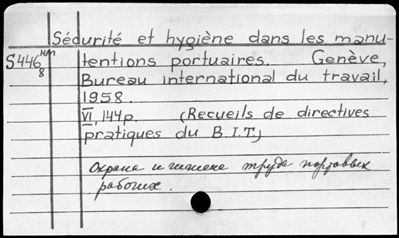 Sécurité et hygiène dans les manu-
S446 НП
8
tentions portuaires. Genève,
Bureau international du travail,
1958.
VI, 144p. (Recueils de directives
pratiques du B.I.T.)
Охрана и гигиена труда портовых
рабочих.